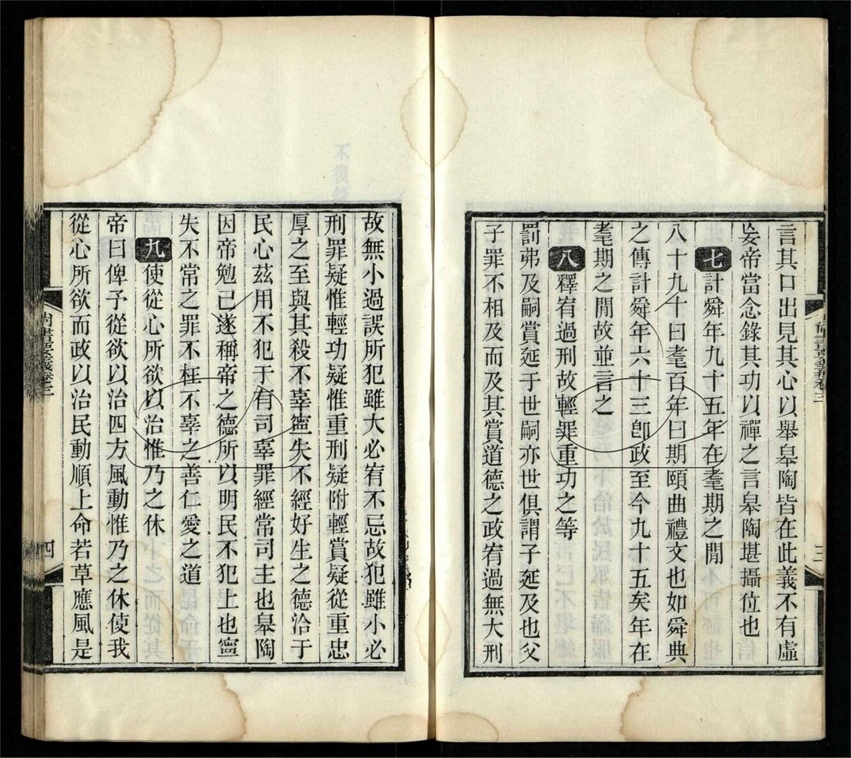 言其口出見其心以舉皋陶皆在此義不有虛
妄帝當念錄其功以禪之言皋陶堪攝位也
七計舜年九十五年在耄期之閒
八十九十曰耄百年曰期頤曲禮文也如舜典
之傳計舜年六十三卽政至今九十五矣年在
耄期之閒故並言之
八釋宥過刑故輕罪重功之等
罰弗及嗣賞延于世嗣亦世俱謂子延及也父
子罪不相及而及其賞道德之政宥過無大刑
故無小過誤所犯雖大必宥不忌故犯雖小必
刑罪疑惟輕功疑惟重刑疑附輕賞疑從重忠
厚之至與其殺不辜寧失不經好生之德洽于
民心茲用不犯于有司辜罪經常司主也皋陶
因帝勉己遂稱帝之德所以明民不犯上也寧
失不常之罪不枉不辜之善仁愛之道
九使從心所欲以治惟乃之休
帝曰俾予從欲以治四方風動惟乃之休使我
從心所欲而政以治民動順上命若草應風是
尚書要義卷三
四